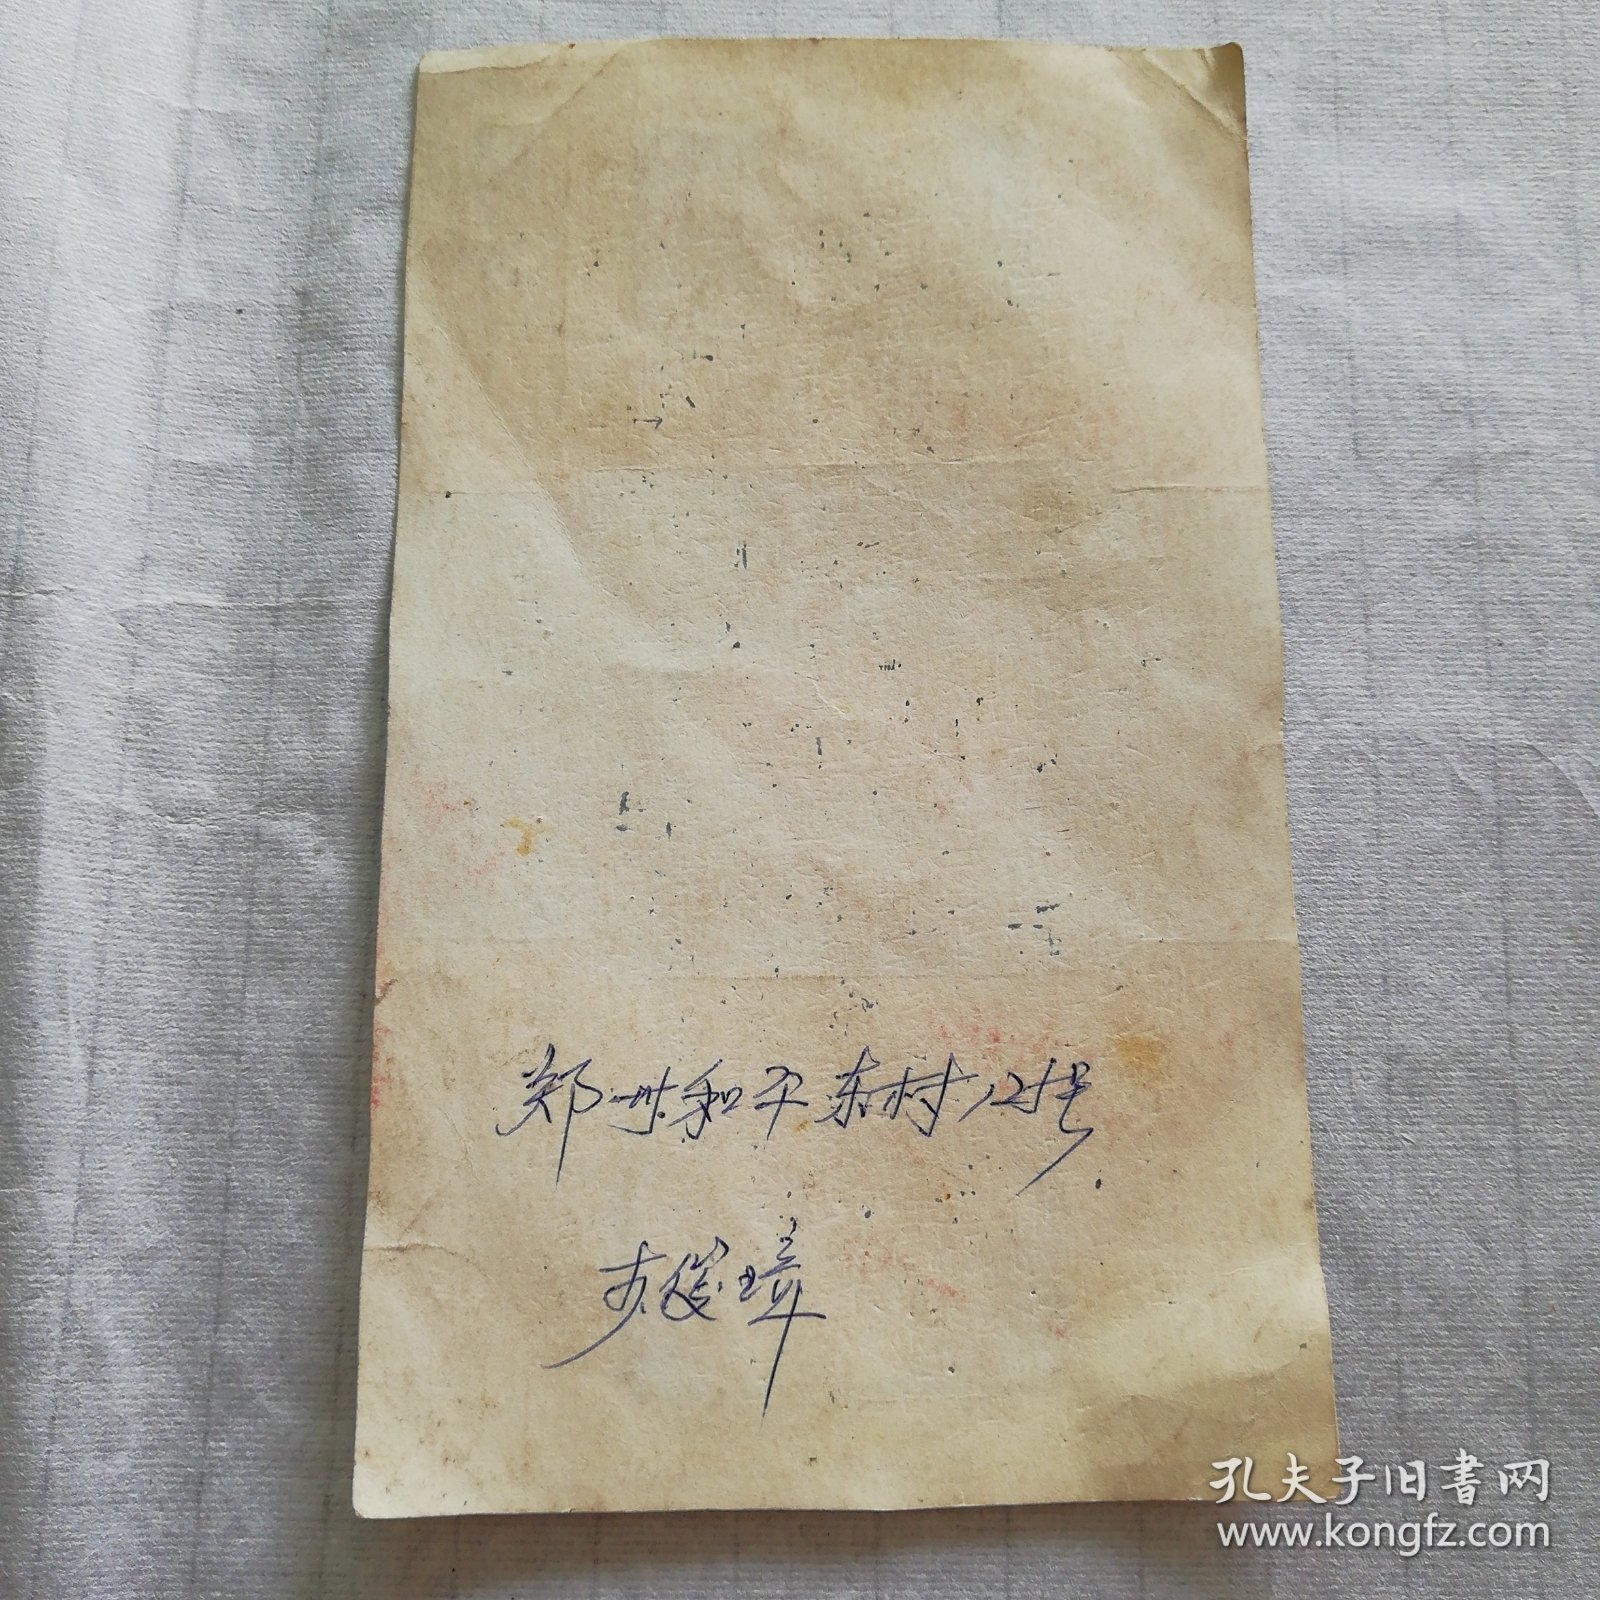 郑州和平东村12号
俊璋
孔夫子旧書网
www.kongfz.com